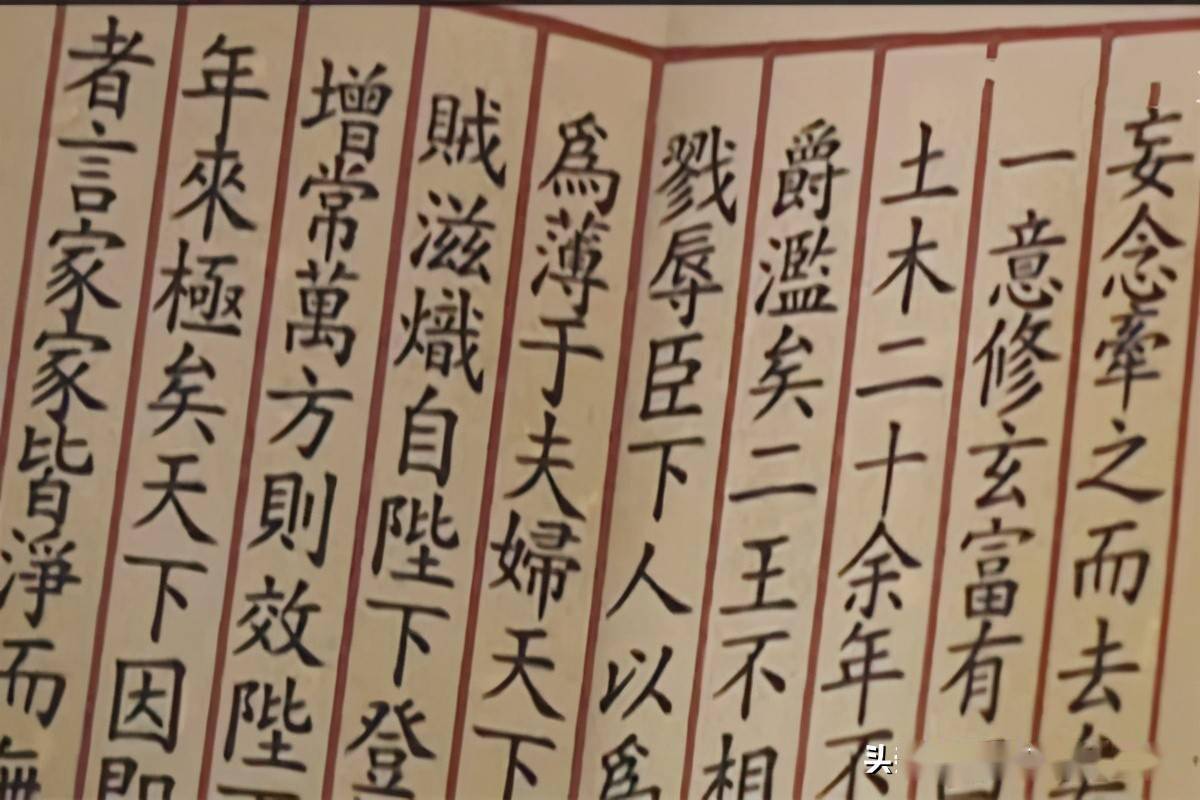 妄念牽之而去矣
一意修玄富有
土木二十余年不
爵濫矣二王不相
戮辱臣下人以爲
爲薄于夫婦天下
賊滋熾自陛下登
增常萬方則效陛
年來極矣天下因即
者言家家皆淨而無
头